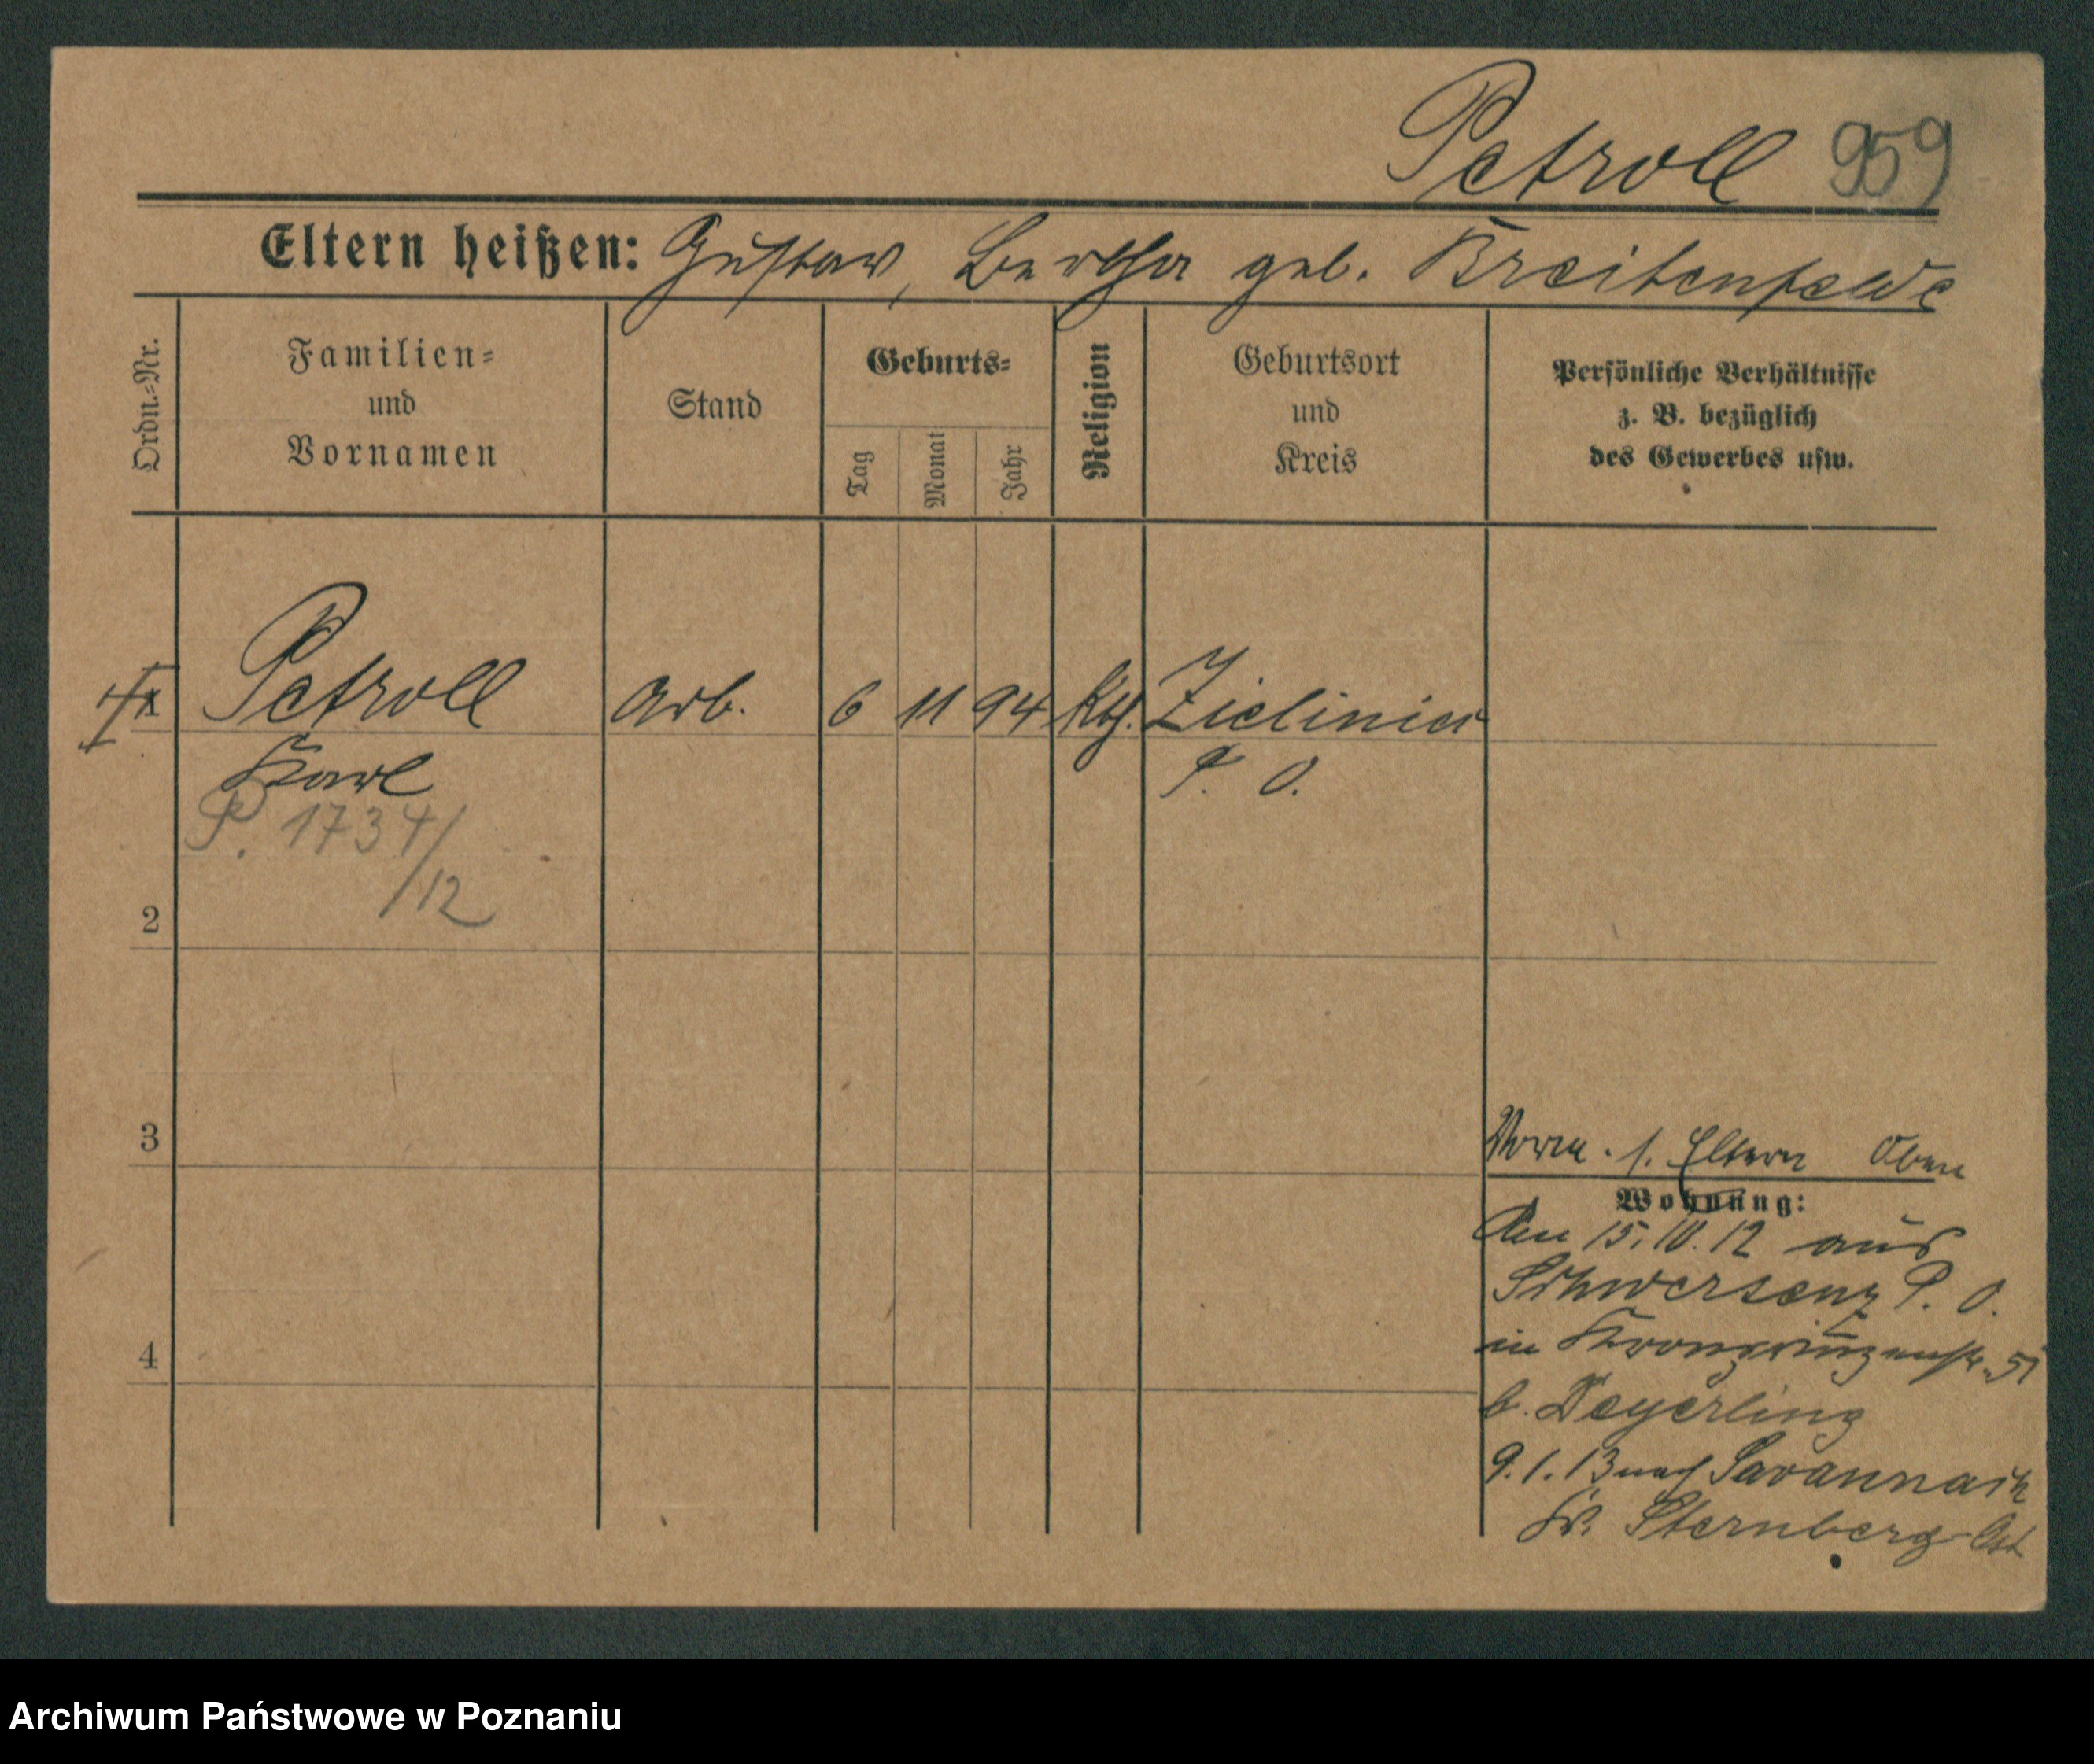 Petroll 959
Eltern heißen: Gustav, Bertha geb. Breitenfelde
Ordn.=Nr.
Familien=
und
Vornamen
Stand
Geburts=
Tag
Monat
Jahr
Religion
Geburtsort
und
Kreis
Persönliche Verhältnisse
z. B. bezüglich
des Gewerbes usw.
1 Petroll Arb. 6 11 94 Kth. Zieliniec
Karl P. O.
P. 1734/12
2
3
Eltern oben
Wohnung:
Am 15.10.12 aus
Schwersenz P. O.
in Kronprinzenstr. 51
b. Deyerling
9.1.13 nach Savannah
Kr. Sternberg-Ost
4
Archiwum Państwowe w Poznaniu